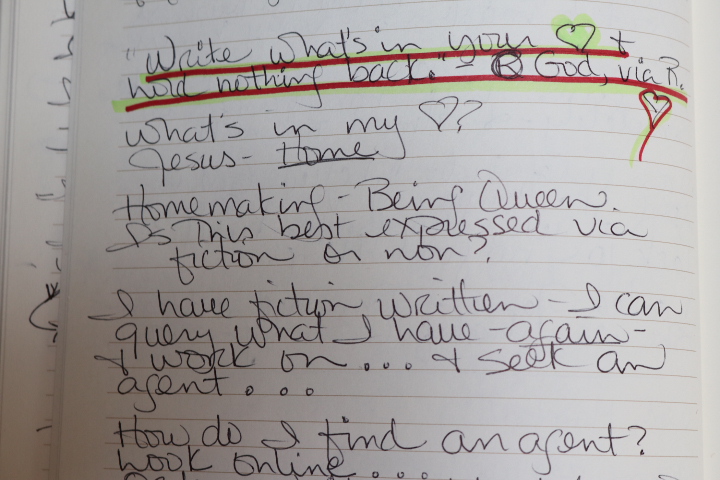 "Write what's in your ♡ +
hold nothing back." - God, via R.
What's in my ♡?
Jesus - Home
Homemaking - Being Queen.
Is This best expressed via
fiction or non?
I have fiction written - I can
query what I have - again -
& work on... & seek an
agent....
How do I find an agent?
Look online....